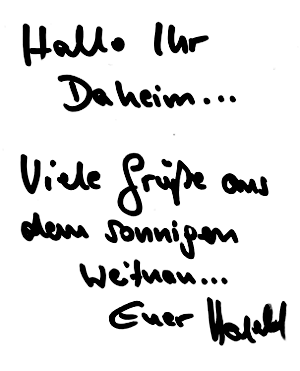 Hallo Ihr
Daheim...
Viele Grüße aus
dem sonnigen
Weitnau...
Euer